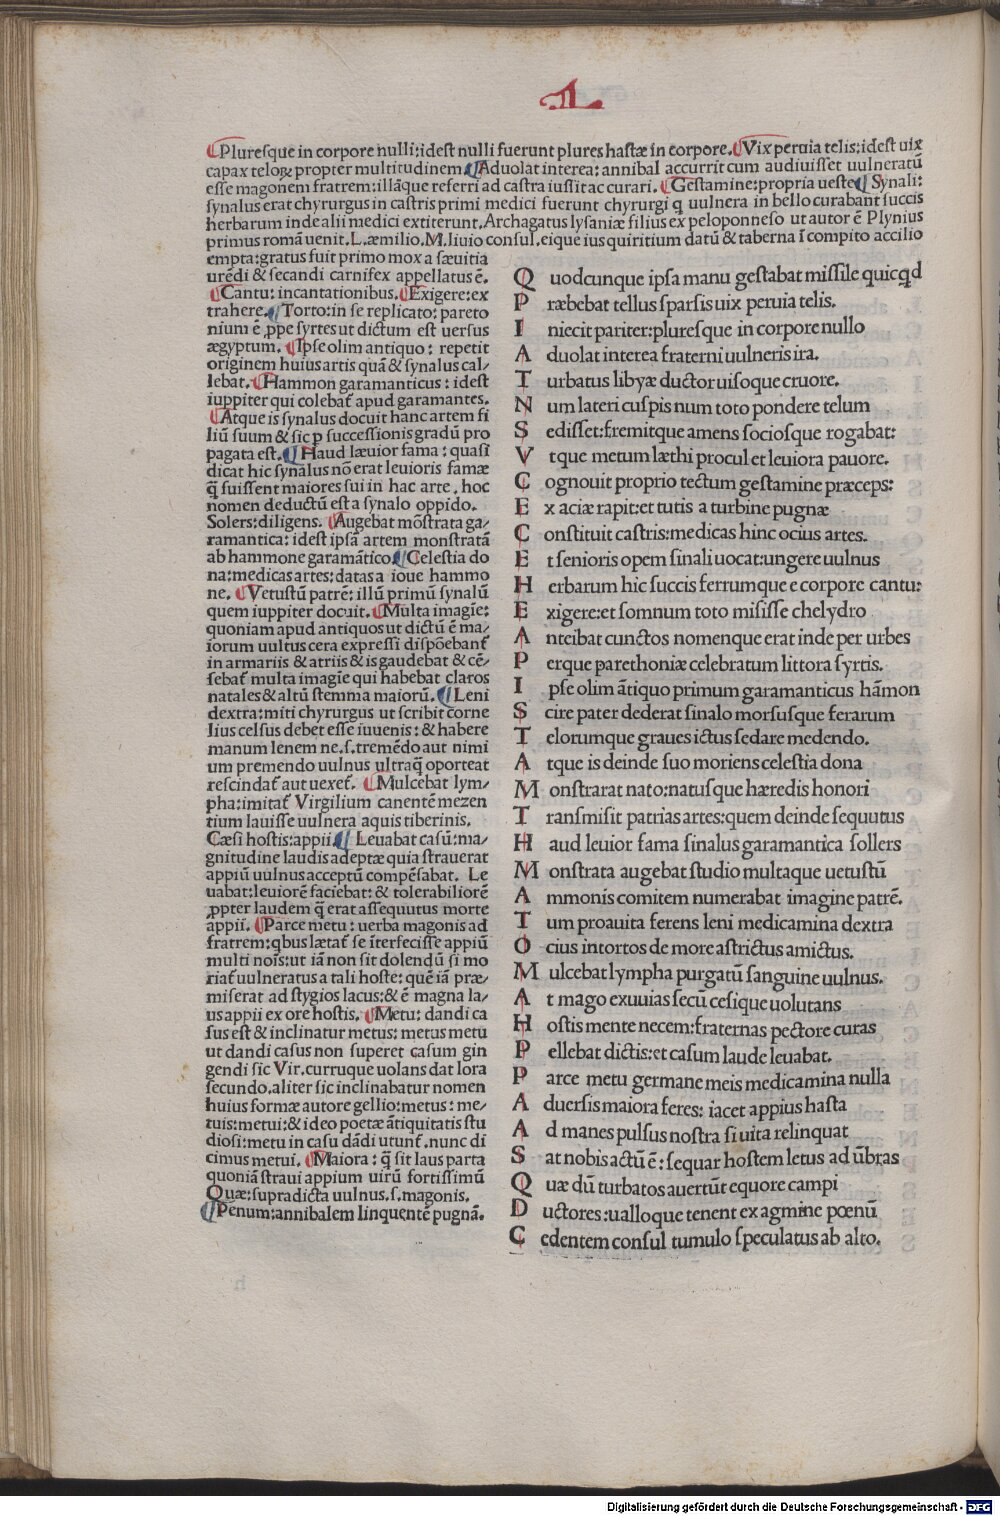 L
Pluresque in corpore nulli:idest nulli fuerunt plures hastæ in corpore. Vix peruia telis:idest uix
capax teloꝝ propter multitudinem. Aduolat interea: annibal accurrit cum audiuisset uulneratū
esse magonem fratrem:illāque referri ad castra iussit ac curari. Gestamine:propria ueste. Synali:
synalus erat chyrurgus in castris primi medici fuerunt chyrurgi q uulnera in bello curabant succis
herbarum inde alii medici extiterunt. Archagatus lysaniæ filius ex peloponneso ut autor ē Plynius
primus romā uenit. L. æmilio. M. liuio consul. eique ius quiritium datū & taberna ī compito accilio
empta:gratus fuit primo mox a sæuitia
urēdi & secandi carnifex appellatus ē.
Cantu:incantationibus. Exigere:ex
trahere. Torto:in se replicato: pareto
nium ē ꝓpe syrtes ut dictum est uersus
ægyptum. Ipse olim antiquo: repetit
originem huius artis quā & synalus cal-
lebat. Hammon garamanticus: idest
iuppiter qui colebat᷑ apud garamantes.
Atque is synalus docuit hanc artem fi
liū suum & sic p successionis gradū pro
pagata est. Haud læuior fama: quasi
dicat hic synalus nō erat leuioris famæ
q̄ fuissent maiores sui in hac arte. hoc
nomen deductū est a synalo oppido.
Solers:diligens. Augebat mōstrata ga/
ramantica: idest ipsā artem monstratā
ab hammone garamātico. Celestia do
na:medicas artes: datas a ioue hammo
ne. Vetustū patrē: illū primū synalū
quem iuppiter docuit. Multa imagīe:
quoniam apud antiquos ut dictū ē ma/
iorum uultus cera expressi dispōebant᷑
in armariis & atriis & is gaudebat & cē/
sebat᷑ multa imagīe qui habebat claros
natales & altū stemma maiorū. Leni
dextra:miti chyrurgus ut scribit corne
lius celsus debet esse iuuenis: & habere
manum lenem ne. s. tremēdo aut nimi
um premendo uulnus ultraq̄ oporteat
rescindat᷑ aut uexet᷑. Mulcebat lym/
pha:imitat᷑ Virgilium canentē mezen
tium lauisse uulnera aquis tiberinis.
Cæsi hostis:appii. Leuabat casū:ma/
gnitudine laudis adeptæ quia strauerat
appiū uulnus acceptū compēsabat. Le
uabat:leuiorē faciebat: & tolerabiliorē
ꝓpter laudem q̄ erat assequutus morte
appii. Parce metu: uerba magonis ad
fratrem:qbus lætat᷑ se īterfecisse appiū
multi nois:ut iā non sit dolendū si mo
riat᷑ uulneratus a tali hoste: quē iā præ/
miserat ad stygios lacus:& ē magna la/
us appii ex ore hostis. Metu: dandi ca
sus est & inclinatur metus: metus metu
ut dandi casus non superet casum gin
gendi sic Vir. curruque uolans dat lora
secundo. aliter sic inclinabatur nomen
huius formæ autore gellio:metus: me/
tuis:metui:& ideo poetæ ātiquitatis stu
diosi:metu in casu dādi utunt᷑. nunc di
cimus metui. Maiora: q̄ sit laus parta
quoniā straui appium uirū fortissimū
Quæ:supradicta uulnus. s. magonis.
Penum:annibalem linquentē pugnā.
Q uodcunque ipsa manu gestabat missile quicq̄d
P ræbebat tellus sparsis uix peruia telis.
I niecit pariter:pluresque in corpore nullo
A duolat interea fraterni uulneris ira.
T urbatus libyæ ductor uisoque cruore.
N um lateri cuspis num toto pondere telum
S edisset:fremitque amens sociosque rogabat:
V tque metum læthi procul et leuiora pauore.
C ognouit proprio tectum gestamine præceps:
E x aciæ rapit:et tutis a turbine pugnæ
C onstituit castris:medicas hinc ocius artes.
E t senioris opem sinali uocat:ungere uulnus
H erbarum hic succis ferrumque e corpore cantu:
E xigere:et somnum toto misisse chelydro
A nteibat cunctos nomenque erat inde per urbes
P erque parethoniæ celebratum littora syrtis.
I pse olim ātiquo primum garamanticus hāmon
S cire pater dederat sinalo morsusque ferarum
T elorumque graues ictus sedare medendo.
A tque is deinde suo moriens celestia dona
M onstrarat nato:natusque hæredis honori
T ransmisit patrias artes:quem deinde sequutus
H aud leuior fama sinalus garamantica sollers
M onstrata augebat studio multaque uetustū
A mmonis comitem numerabat imagine patrē.
T um proauita ferens leni medicamina dextra
O cius intortos de more astrictus amictus.
M ulcebat lympha purgatū sanguine uulnus.
A t mago exuuias secū cesique uolutans
H ostis mente necem:fraternas pectore curas
P ellebat dictis:et casum laude leuabat.
P arce metu germane meis medicamina nulla
A duersis maiora feres: iacet appius hasta
A d manes pulsus nostra si uita relinquat
S at nobis actū ē: sequar hostem letus ad ūbras
Q uæ dū turbatos auertūt equore campi
D uctores:ualloque tenent ex agmine pœnū
C edentem consul tumulo speculatus ab alto.
Digitalisierung gefördert durch die Deutsche Forschungsgemeinschaft - DFG